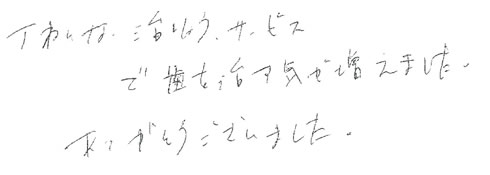 ていねいな治りょう、サービス
で歯を治す気が増えました。
ありがとうございました。